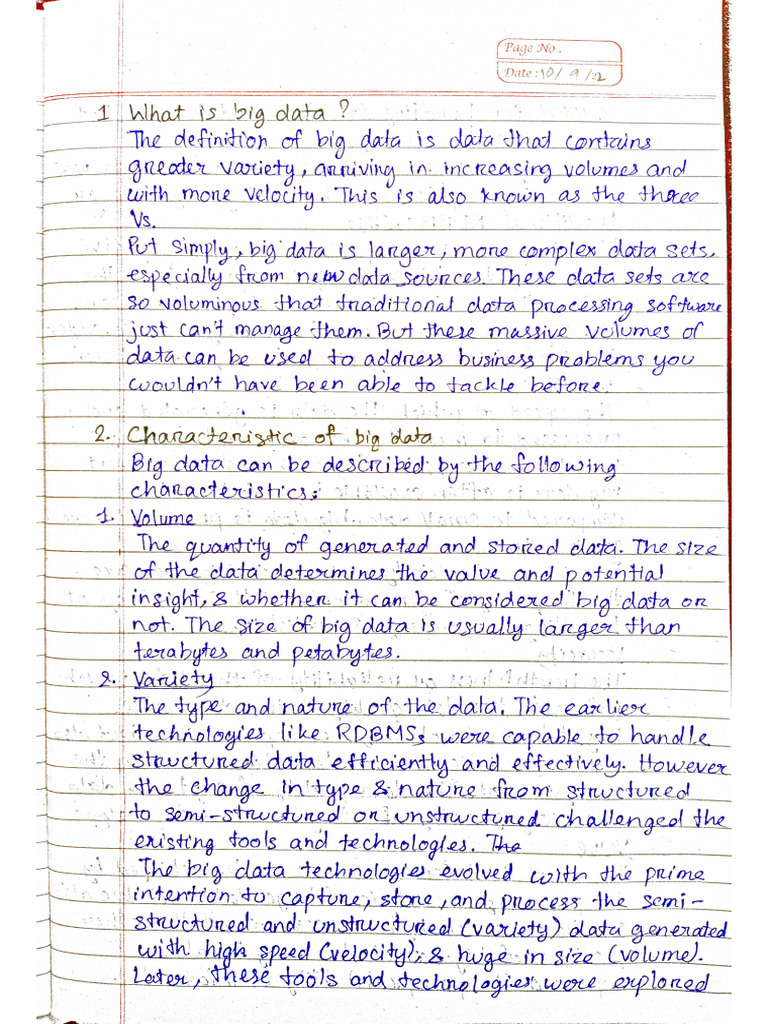 Page No.
Date: 10/ 9 /22
1 What is big data ?
The definition of big data is data that contains
greater variety, arriving in increasing volumes and
with more velocity. This is also known as the three
Vs.
Put simply, big data is larger, more complex data sets,
especially from new data sources. These data sets are
so voluminous that traditional data processing software
just can't manage them. But these massive volumes of
data can be used to address business problems you
wouldn't have been able to tackle before.
2. Characteristic of big data
Big data can be described by the following
characteristics:
1. Volume
The quantity of generated and stored data. The size
of the data determines the value and potential
insight, & whether it can be considered big data or
not. The size of big data is usually larger than
terabytes and petabytes.
2. Variety
The type and nature of the data. The earlier
technologies like RDBMSs were capable to handle
structured data efficiently and effectively. However
the change in type & nature from structured
to semi-structured or unstructured challenged the
existing tools and technologies. The
The big data technologies evolved with the prime
intention to capture, store, and process the semi-
structured and unstructured (variety) data generated
with high speed (velocity), & huge in size (volume).
Later, these tools and technologies were explored